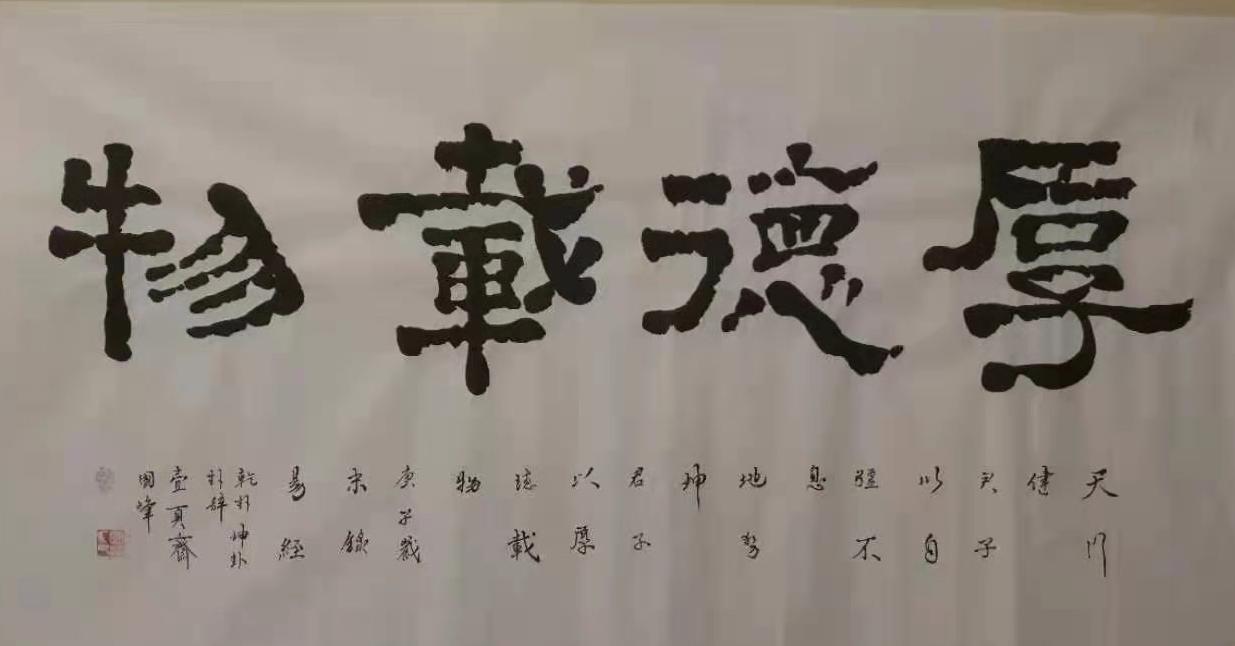 厚德載物
天行
健
君子
以自
强不
息
地势
坤
君子
以厚
德載
物
庚子歲
末錄
易經
乾卦坤卦
卦辞
壹頁齋
國峰